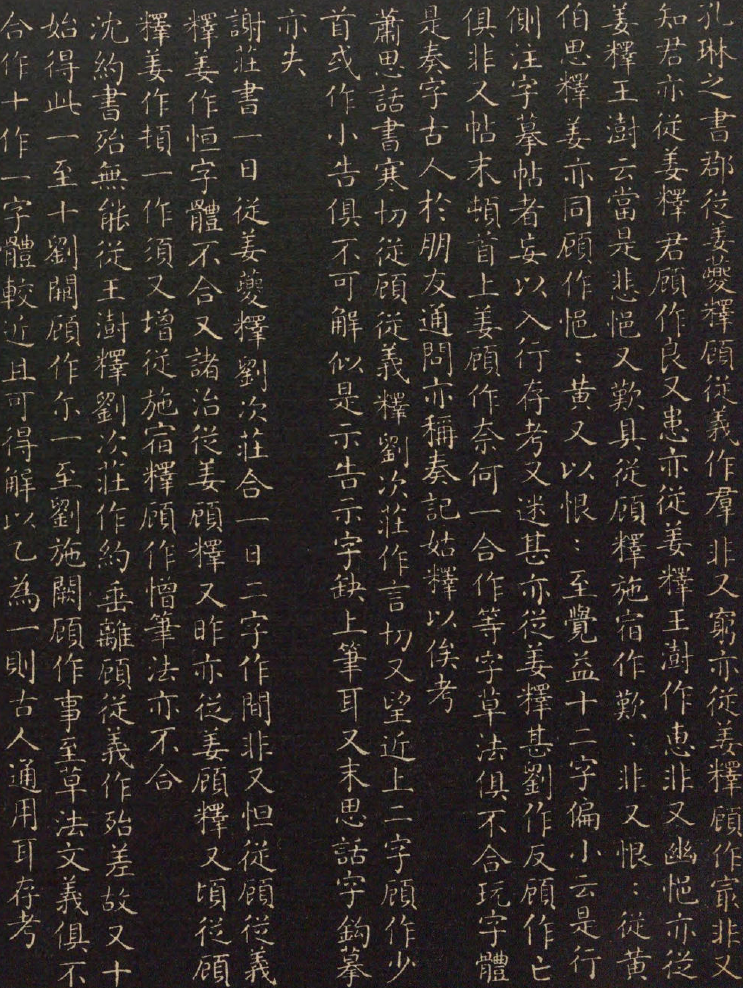 孔琳之書郡從姜夔釋顧從義作羣非又窮亦從姜釋顧作寡非又
知君亦從姜釋君顧作良又患亦從姜釋王澍作惠非又幽悒亦從
姜釋王澍云當是悲悒又歎具從顧釋施宿作歎:非又恨:從黃
伯思釋姜亦同顧作悒:黃又以恨:至覺益十二字偏小云是行
側注字摹帖者妄以入行存考又迷甚亦從姜釋甚劉作反顧作亡
俱非又帖末頓首上姜顧作奈何一合作等字草法俱不合玩字體
是奏字古人於朋友通問亦稱奏記姑釋以俟考
蕭思話書寒切從顧從義釋劉次莊作言切又望近上二字顧作少
首或作小告俱不可解似是示告示字缺上筆耳又末思話字鈎摹
亦失
謝莊書一日從姜夔釋劉次莊合一日二字作間非又怛從顧從義
釋姜作恒字體不合又諸治從姜顧釋又昨亦從姜顧釋又頃從顧
釋姜作頓一作須又增從施宿釋顧作憎筆法亦不合
沈約書殆無能從王澍釋劉次莊作約垂離顧從義作殆差故又十
始得此一至十劉闕顧作尓一至劉施闕顧作事至草法文義俱不
合作十作一字體較近且可得解以乙為一則古人通用耳存考